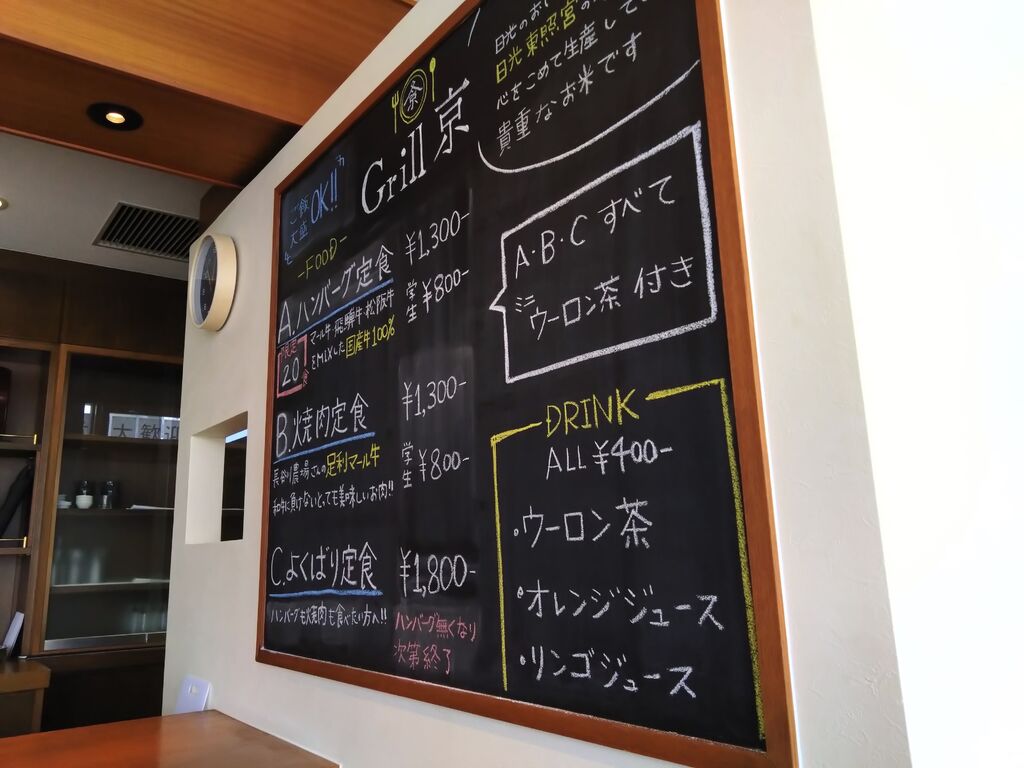 日光のおい
日光東照宮の
心をこめて生産して
貴重なお米です
京
Grill 京
ご飯
大盛OK!!
-FOOD-
A.ハンバーグ定食 ¥1,300-
学生 ¥800-
限定20食
マール牛・飛騨牛・松阪牛
をMIXした国産牛100%
B.焼肉定食 ¥1,300-
長谷川農場さんの足利マール牛
学生 ¥800-
和牛に負けないとっても美味しいお肉!!
C.よくばり定食 ¥1,800-
ハンバーグも焼肉も食べたい方へ!!
ハンバーグ無くなり
次第終了
A・B・C すべて
ミニ
ウーロン茶 付き
DRINK
ALL ¥400-
・ウーロン茶
・オレンジジュース
・リンゴジュース
大歓迎